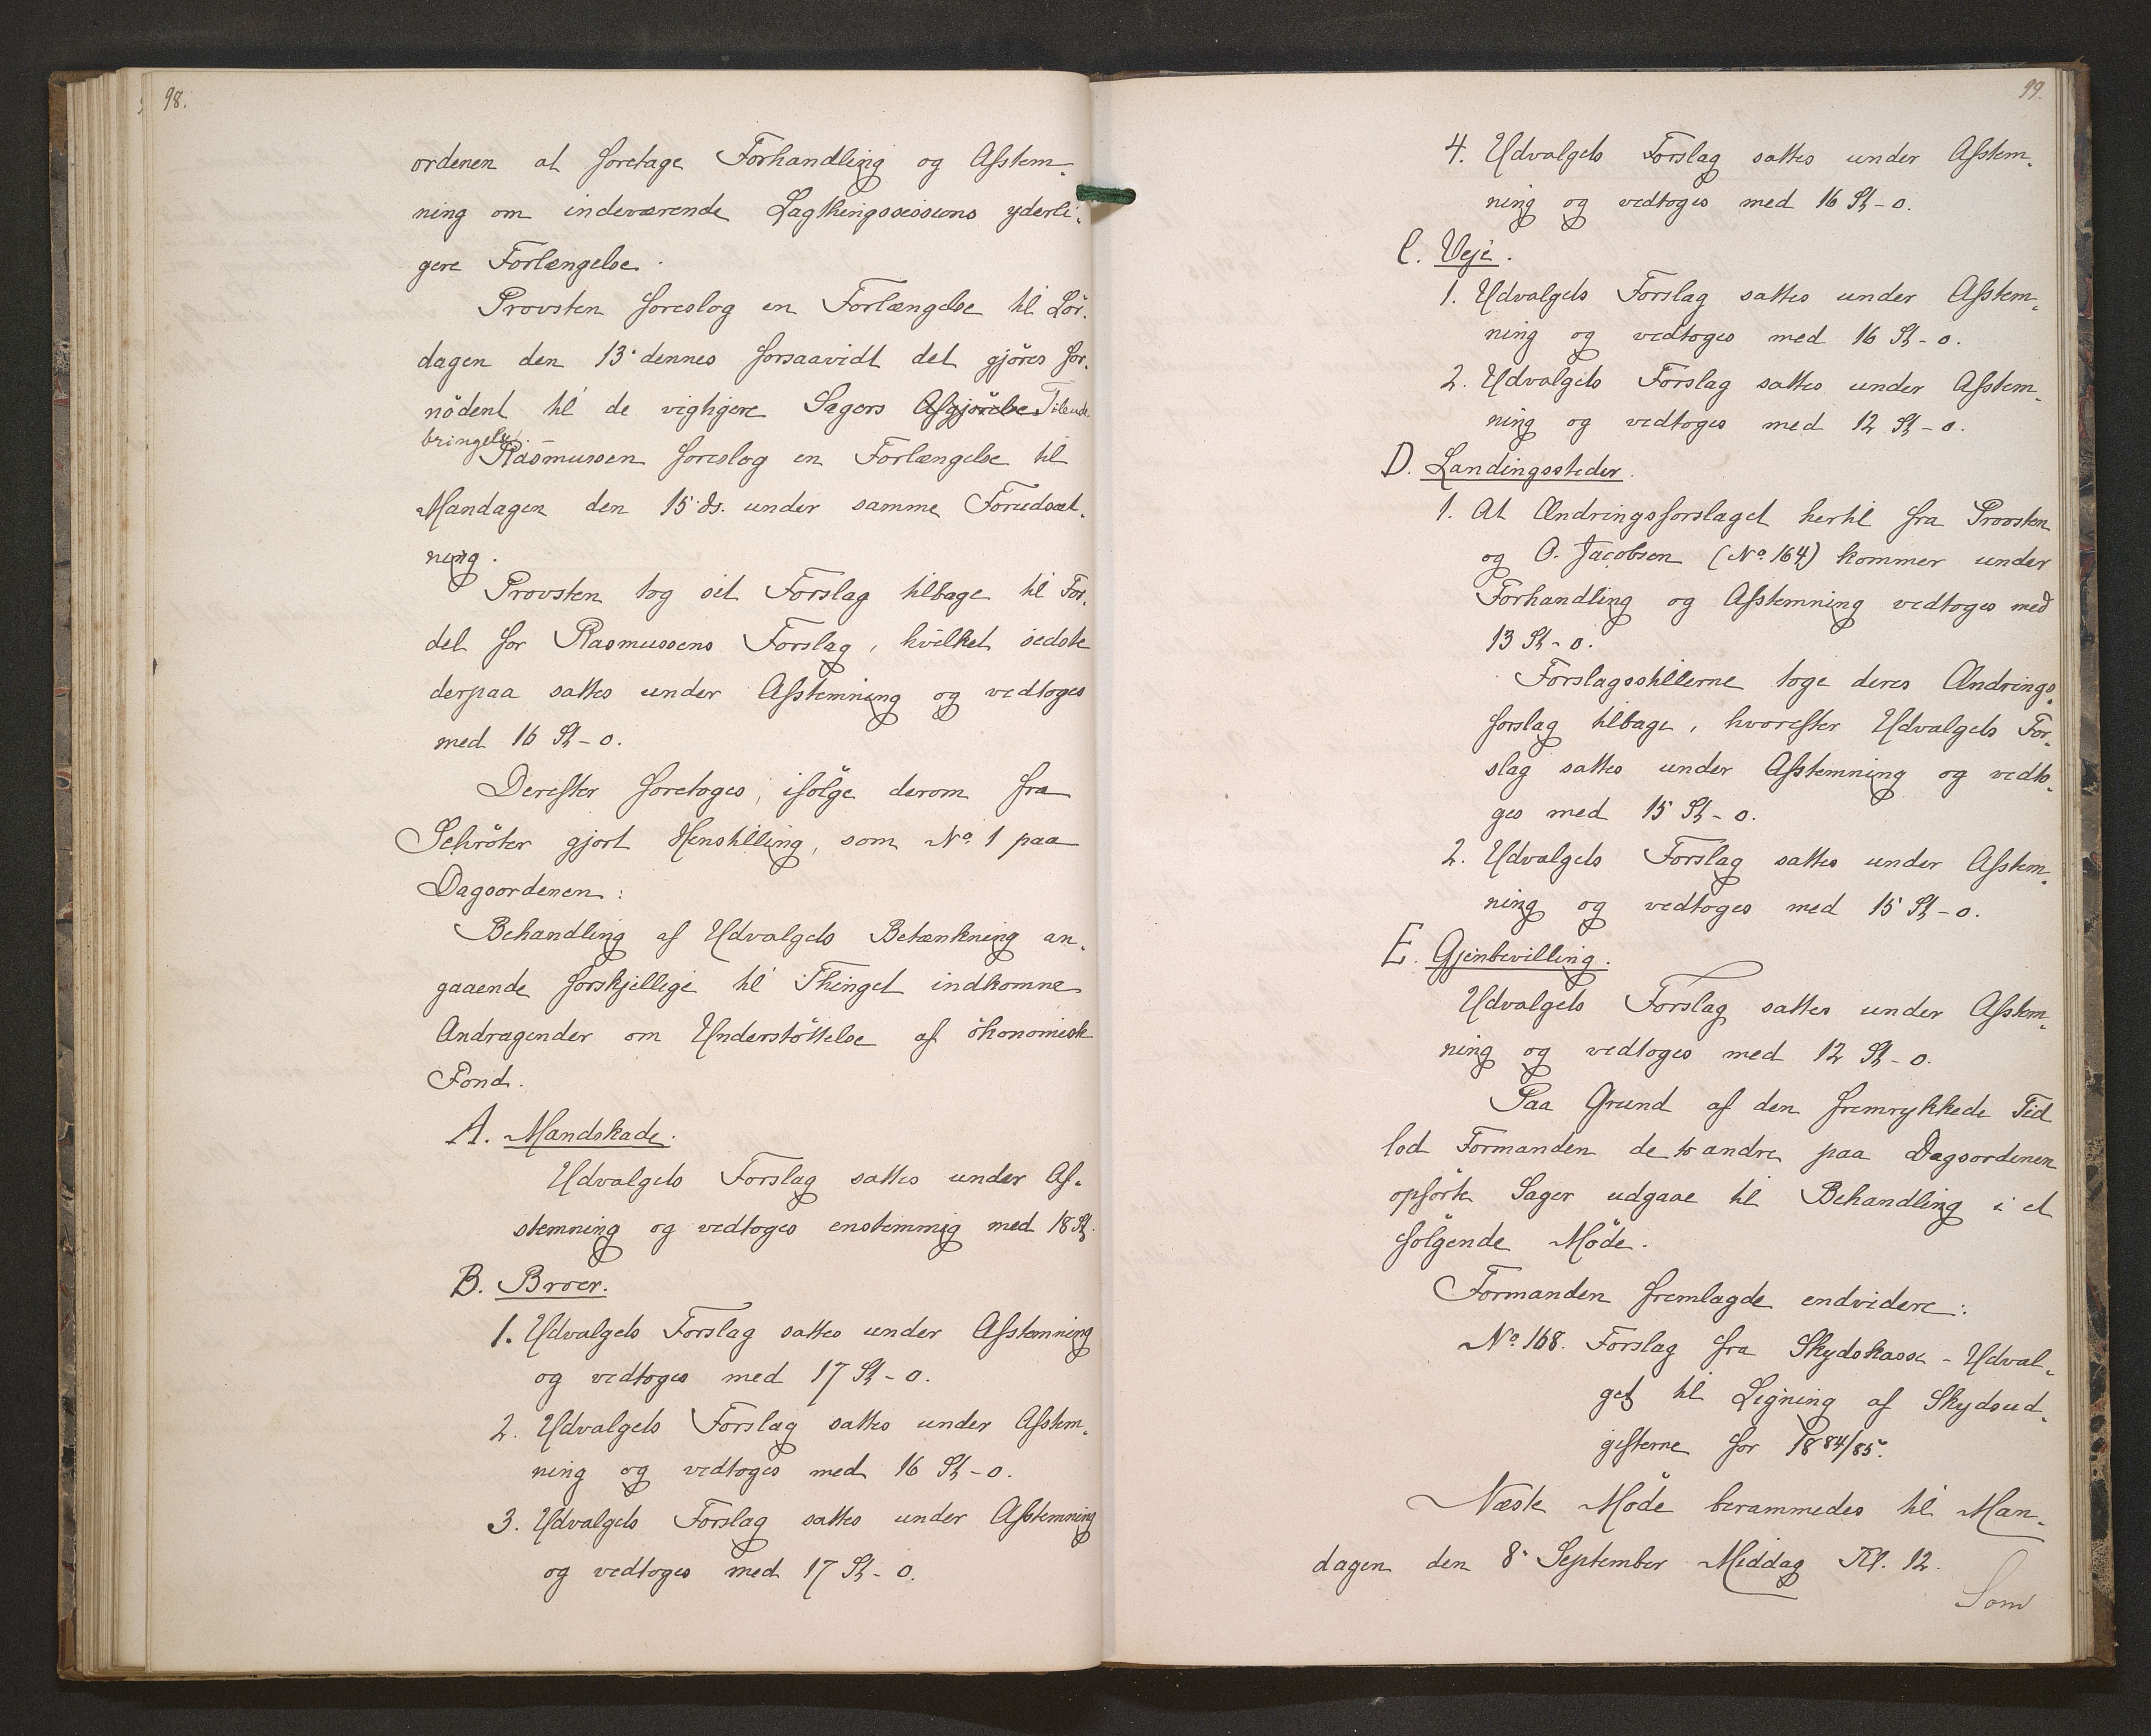 98.
ordenen at foretage Forhandling og Afstem-
ning om indeværende Lagthingssessions yderli-
gere Forlængelse.
Provsten foreslog en Forlængelse til Lör-
dagen den 13. dennes forsaavidt det gjöres for-
nödent til de vigtigere Sagers Afgjörelse Tilende-
bringelse.
Rasmussen foreslog en Forlængelse til
Mandagen den 15. ds. under samme Forudsæt-
ning.
Provsten tog sit Forslag tilbage til For-
del for Rasmussens Forslag, hvilket sidste
derpaa sattes under Afstemning og vedtoges
med 16 St - 0.
Derefter foretoges, ifölge derom fra
Schröter gjort Henstilling, som No. 1 paa
Dagsordenen:
Behandling af Udvalgets Betænkning an-
gaaende forskjellige til Thinget indkomne
Andragender om Understöttelse af ökonomisk
Fond.
A. Mandskade.
Udvalgets Forslag sattes under Af-
stemning og vedtoges enstemmig med 18 St.
B. Broer.
1. Udvalgets Forslag sattes under Afstemning
og vedtoges med 17 St - 0.
2. Udvalgets Forslag sattes under Afstem-
ning og vedtoges med 16 St - 0.
3. Udvalgets Forslag sattes under Afstemning
og vedtoges med 17 St - 0.
99.
4. Udvalgets Forslag sattes under Afstem-
ning og vedtoges med 16 St - 0.
C. Veje.
1. Udvalgets Forslag sattes under Afstem-
ning og vedtoges med 16 St - 0.
2. Udvalgets Forslag sattes under Afstem-
ning og vedtoges med 12 St - 0.
D. Landingssteder.
1. At Ændringsforslaget hertil fra Provsten
og O. Jacobsen (No. 164) kommer under
Forhandling og Afstemning vedtoges med
13 St - 0.
Forslagsstillerne toge deres Ændrings-
forslag tilbage, hvorefter Udvalgets For-
slag sattes under Afstemning og vedto-
ges med 15 St - 0.
2. Udvalgets Forslag sattes under Afstem-
ning og vedtoges med 15 St - 0.
E. Gjenbevilling.
Udvalgets Forslag sattes under Afstem-
ning og vedtoges med 12 St - 0.
Paa Grund af den fremrykkede Tid
lod Formanden de to andre paa Dagsordenen
opförte Sager udgaae til Behandling i et
fölgende Möde.
Formanden fremlagde endvidere:
No. 168. Forslag fra Skydskasse-Udval-
get til Ligning af Skydsud-
gifterne for 1884/85.
Næste Möde berammedes til Man-
dagen den 8. September Middag Kl. 12.
Som